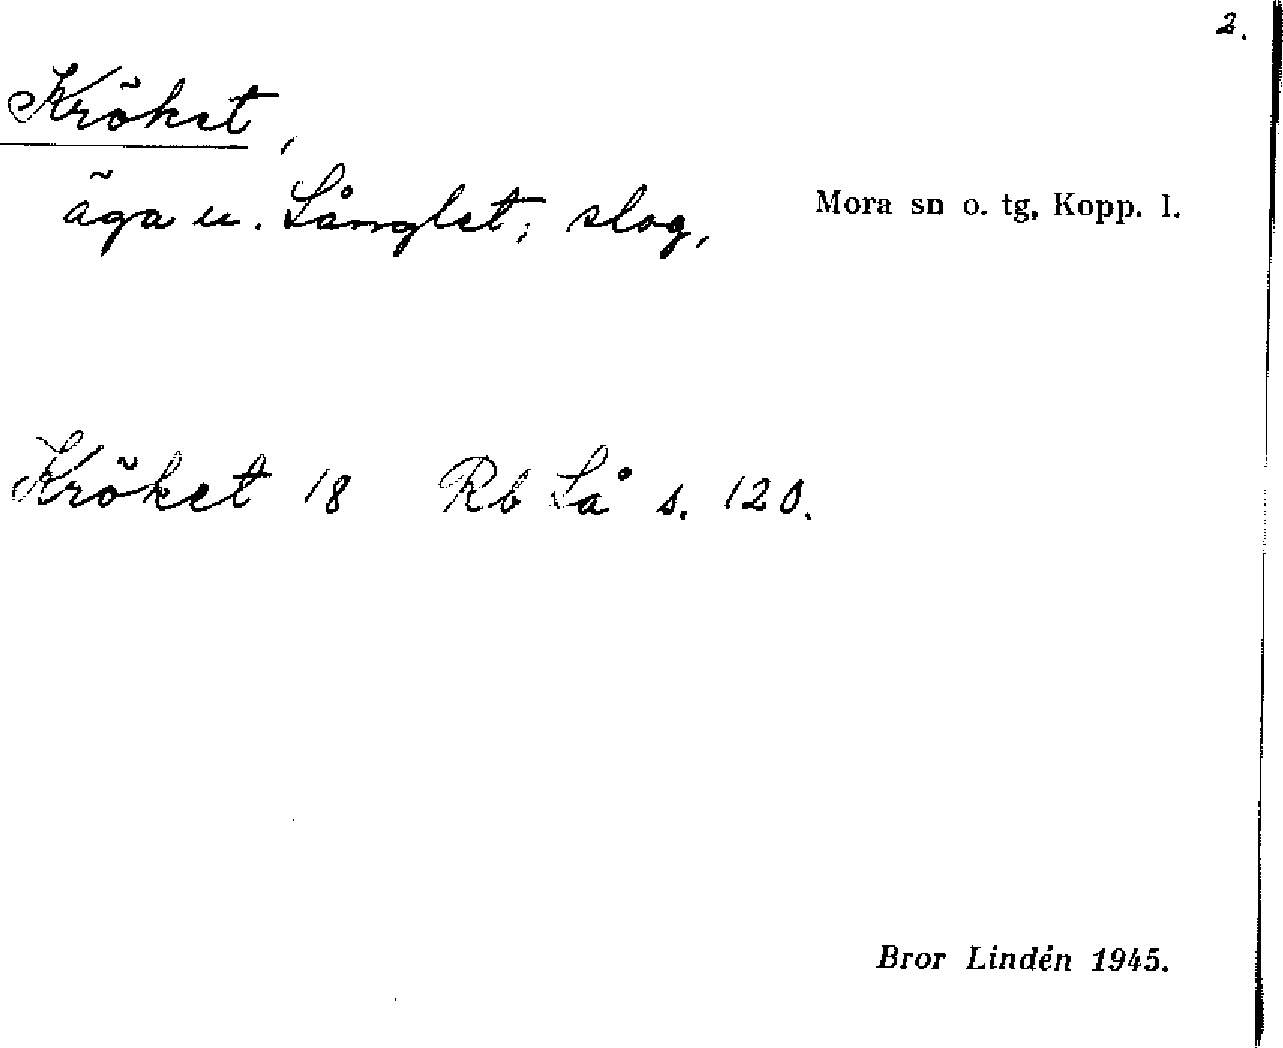 2.
Kröket,
äga u. Långlet; slog,
Mora sn o. tg, Kopp. l.
Kröket 18 Rb Lå s. 120.
Bror Lindén 1945.